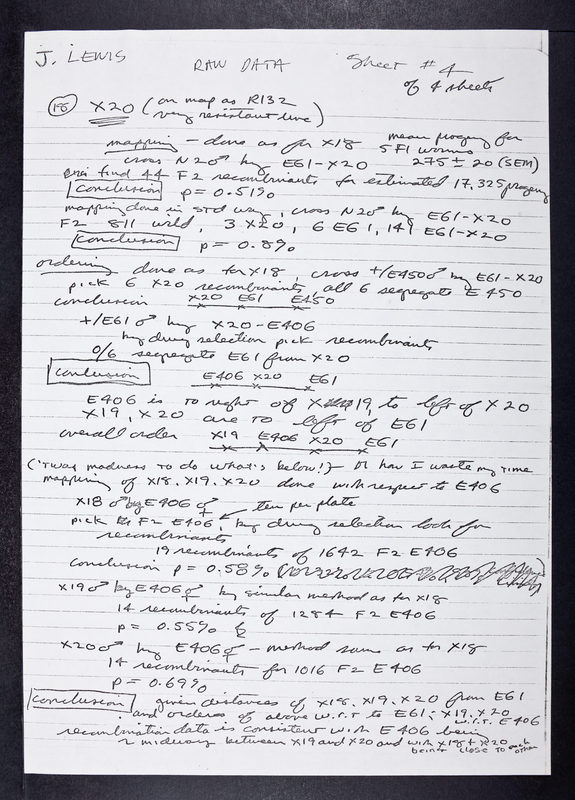 J. LEWIS RAW DATA Sheet #4
of 4 sheets
18 X20 (on map as R132
very resistant line)
mapping - done as for X18 mean progeny for
5 F1 worms
cross N2♂ by E61-X20 275 ± 20 (SEM)
find 44 F2 recombinants for estimated 17,325 progeny
conclusion p = 0.51%
mapping done in std way, cross N2♂ by E61-X20
F2 811 wild, 3 X20, 6 E61, 141 E61-X20
conclusion p = 0.8%
ordering done as for X18, cross +/E450♂ by E61-X20
pick 6 X20 recombinants, all 6 segregate E450
conclusion X20 E61 E450
+/E61 ♂ by X20-E406
by drug selection pick recombinants
0/6 segregate E61 from X20
conclusion E406 X20 E61
E406 is to right of X19, to left of X20
X19, X20 are to left of E61
overall order X19 E406 X20 E61
('Twas madness to do what's below!) - Or how I waste my time
mapping of X18, X19, X20 done with respect to E406
X18 ♂ by E406 ⚥ ten per plate
pick F2 E406, by drug selection look for
recombinants
19 recombinants of 1642 F2 E406
conclusion p = 0.58%
X19♂ by E406⚥ by similar method as for X18
14 recombinants of 1284 F2 E406
p = 0.55%
X20♂ by E406⚥ - method same as for X18
14 recombinants for 1016 F2 E406
p = 0.69%
conclusion given distances of X18, X19, X20 from E61
and orders of above w.r.t to E61; X19, X20
w.r.t. E406
recombination data is consistent with E406 being
~ midway between X19 and X20 and with X18 + X20
being close to each
other